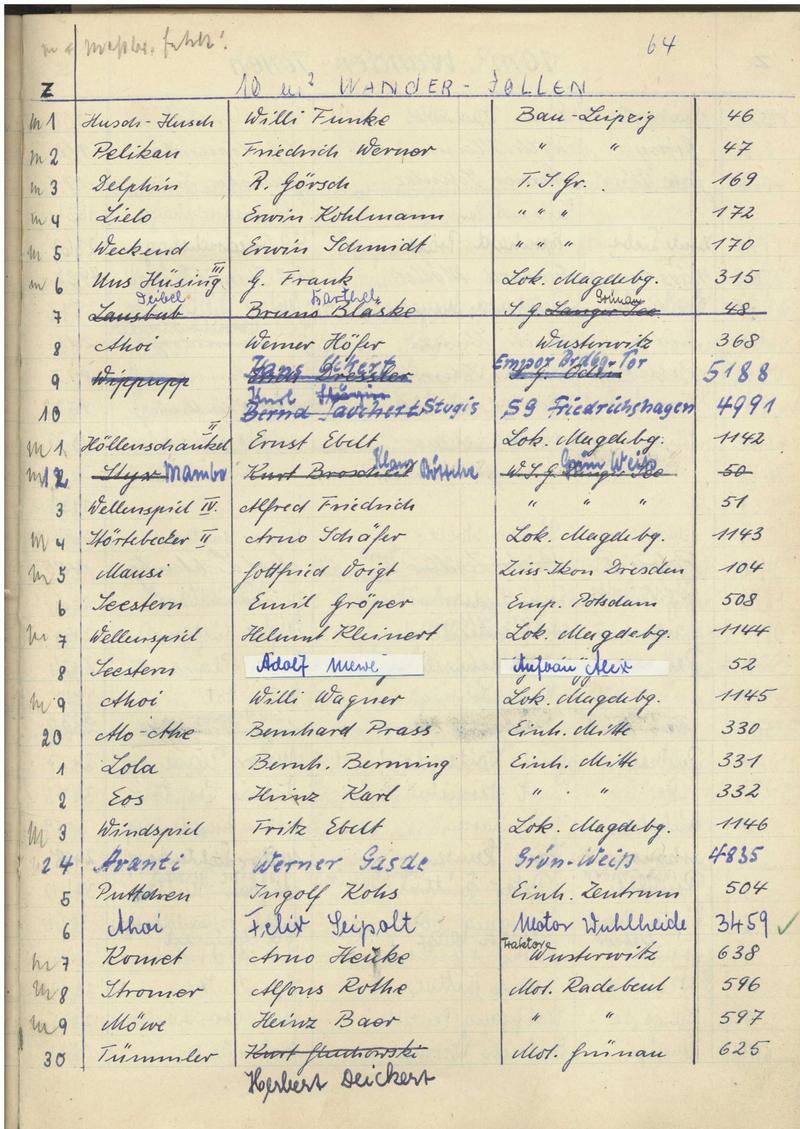 m = Meßbr. fehlt!
64
Z 10 m² WANDER-JOLLEN
m 1 Husch-Husch Willi Funke Bau-Leipzig 46
m 2 Pelikan Friedrich Werner " " 47
m 3 Delphin R. Görsch T.S.Gr. 169
m 4 Lielo Erwin Kohlmann " " " 172
m 5 Weekend Erwin Schmidt " " " 170
m 6 Uns Hüsing III G. Frank Lok. Magdebg. 315
Deibel Barthel Grünau
7 Lausbub Bruno Blaske S.G. Langer See 48
8 Ahoi Werner Höfer Wusterwitz 368
Hans Eckert Empor Brdbg-Tor
9 Wippupp 5188
Kurl
10 Bernd Tauchert Stugis SG Friedrichshagen 4991
m 1 Höllenschaukel II Ernst Ebelt Lok. Magdebg. 1142
Klaus Grün Weiß
m 12 Styx Mambo Kurt Böttche W.S.G. Langer See 50
3 Wellenspiel IV. Alfred Friedrich " " " 51
m 4 Störtebecker II Arno Schäfer Lok. Magdebg. 1143
m 5 Mausi Gottfried Voigt Zeiss-Ikon Dresden 104
6 Seestern Emil Gröper Emp. Potsdam 508
m 7 Wellenspiel Helmut Kleinert Lok. Magdebg. 1144
8 Seestern Adolf Mewe Aufbau Alex 52
m 9 Ahoi Willi Wagner Lok. Magdebg. 1145
20 Alo-Ahe Bernhard Prass Einh. Mitte 330
1 Lola Bernh. Berming Einh. Mitte 331
2 Eos Heinz Karl " " 332
m 3 Windspiel Fritz Ebelt Lok. Magdebg. 1146
24 Avanti Werner Gasde Grün-Weiß 4835
5 Puttchen Ingolf Kohs Einh. Zentrum 504
6 Ahoi Felix Seipolt Motor Wuhlheide 3459 ✓
Traktor
m 7 Komet Arno Henke Wusterwitz 638
m 8 Stromer Alfons Rothe Mot. Radebeul 596
m 9 Möwe Heinz Baer " " 597
30 Tümmler Kurt Gluchowski Mot. Grünau 625
Herbert Deickert